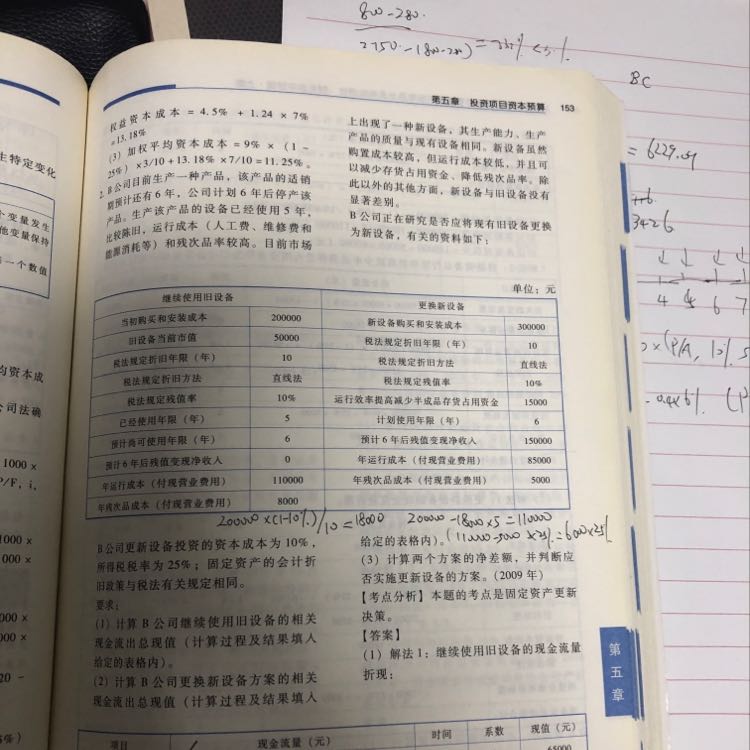 800-280
BC
= 6229.09
3426
4 5 6 7
第五章 投资项目资本预算 153
生特定变化
个变量发生
他变量保持
一个数值
均资本成
公司法确
1000 ×
P/F，i，
权益资本成本 = 4.5% + 1.24 × 7%
=13.18%
（3）加权平均资本成本 = 9% ×（1-
25%）×3/10+13.18%×7/10=11.25%。
2. B公司目前生产一种产品，该产品的适销
期预计还有6年，公司计划6年后停产该
产品。生产该产品的设备已经使用5年，
比较陈旧，运行成本（人工费、维修费和
能源消耗等）和残次品率较高。目前市场
上出现了一种新设备，其生产能力、生产
产品的质量与现有设备相同。新设备虽然
购置成本较高，但运行成本较低，并且可
以减少存货占用资金、降低残次品率。除
此以外的其他方面，新设备与旧设备没有
显著差别。
B公司正在研究是否应将现有旧设备更换
为新设备，有关的资料如下：
单位：元
继续使用旧设备 更换新设备
当初购买和安装成本 200000 新设备购买和安装成本 300000
旧设备当前市值 50000 税法规定折旧年限（年） 10
税法规定折旧年限（年） 10 税法规定折旧方法 直线法
税法规定折旧方法 直线法 税法规定残值率 10%
税法规定残值率 10% 运行效率提高减少半成品存货占用资金 15000
已经使用年限（年） 5 计划使用年限（年） 6
预计尚可使用年限（年） 6 预计6年后残值变现净收入 150000
预计6年后残值变现净收入 0 年运行成本（付现营业费用） 85000
年运行成本（付现营业费用） 110000 年残次品成本（付现营业费用） 5000
年残次品成本（付现营业费用） 8000
200000×(1-10%)/10=18000 200000-18000×5=110000
B公司更新设备投资的资本成本为10%，
所得税税率为25%；固定资产的会计折
旧政策与税法有关规定相同。
要求：
（1）计算B公司继续使用旧设备的相关
现金流出总现值（计算过程及结果填入
给定的表格内）。
（2）计算B公司更换新设备方案的相关
现金流出总现值（计算过程及结果填入
给定的表格内）。
（3）计算两个方案的净差额，并判断应
否实施更新设备的方案。（2009年）
【考点分析】本题的考点是固定资产更新
决策。
【答案】
（1）解法1：继续使用旧设备的现金流量
折现：
第五章
项目 现金流量（元） 时间 系数 现值（元）